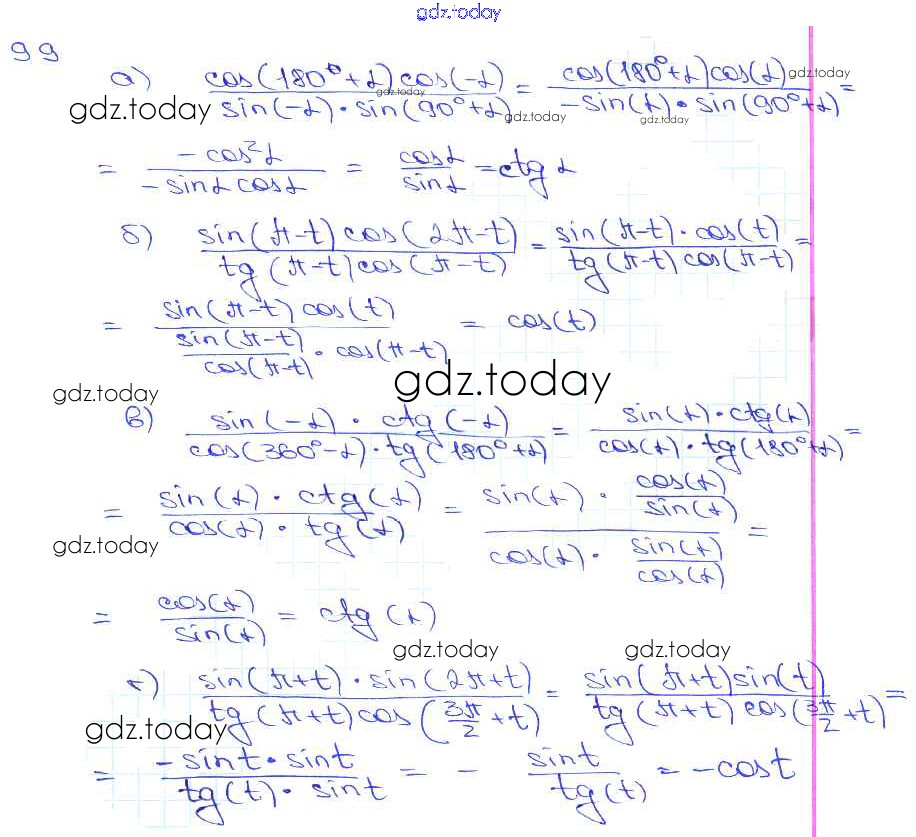 gdz.today
99
а) cos(180°+α)cos(-α) / sin(-α)·sin(90°+α) = cos(180°+α)cos(α) / -sin(α)·sin(90°+α) =
gdz.today gdz.today gdz.today gdz.today gdz.today
= -cos²α / -sinα cosα = cosα / sinα = ctg α
б) sin(π-t) cos(2π-t) / tg(π-t) cos(π-t) = sin(π-t)·cos(t) / tg(π-t) cos(π-t) =
= sin(π-t) cos(t) / (sin(π-t) / cos(π-t) · cos(π-t)) = cos(t)
gdz.today gdz.today
в) sin(-α)·ctg(-α) / cos(360°-α)·tg(180°+α) = sin(α)·ctg(α) / cos(α)·tg(180°+α) =
= sin(α)·ctg(α) / cos(α)·tg(α) = sin(α)·cos(α)/sin(α) / cos(α)·sin(α)/cos(α) =
gdz.today
= cos(α) / sin(α) = ctg(α)
gdz.today gdz.today
г) sin(π+t)·sin(2π+t) / tg(π+t)cos(3π/2+t) = sin(π+t)sin(t) / tg(π+t) cos(3π/2+t) =
gdz.today
= -sint·sint / tg(t)·sint = - sint / tg(t) = -cost